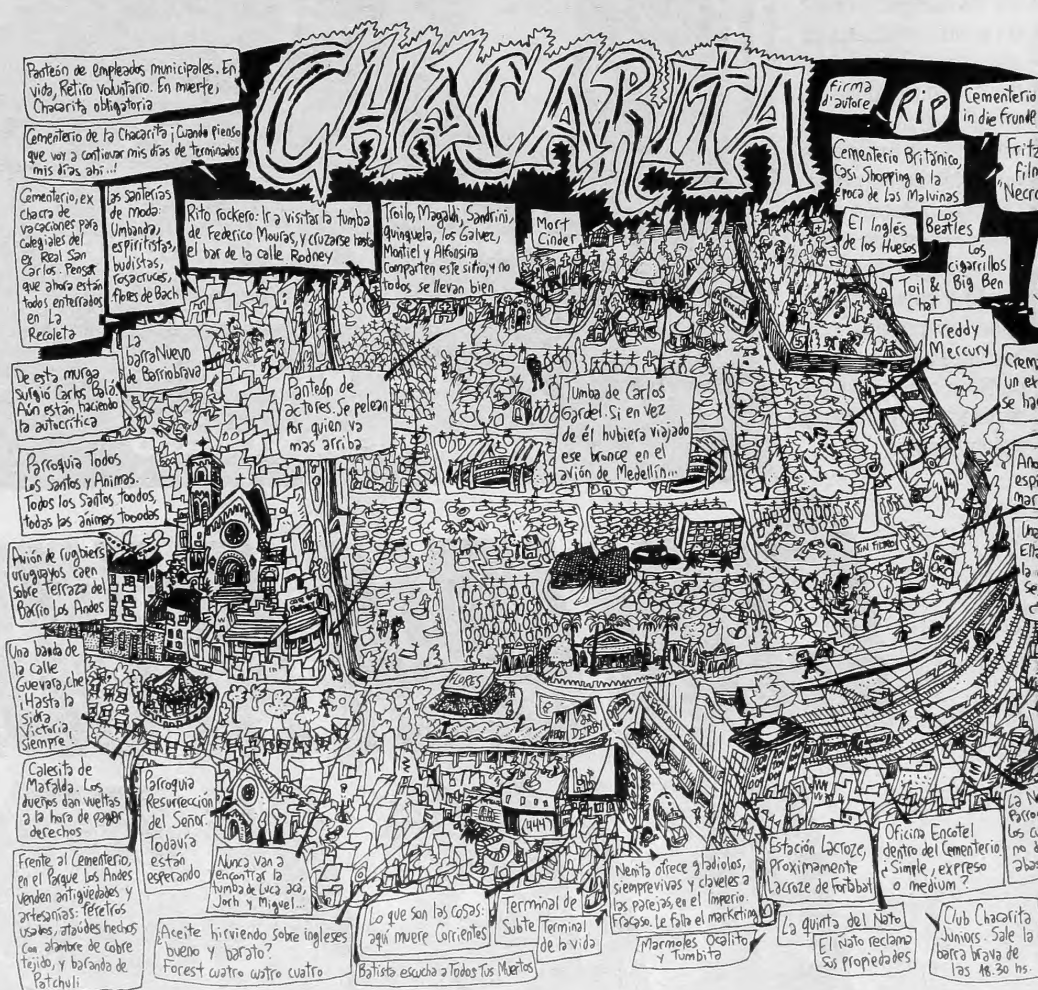 CHACARITA
Panteón de empleados municipales. En
vida, Retiro voluntario. En muerte,
Chacarita obligatoria
Cementerio de la Chacarita ¡Cuando pienso
que voy a continuar mis días de terminados
mis días ahí...!
Cementerio, ex
chacra de
vacaciones para
colegiales del
ex Real San
Carlos. Pensar
que ahora están
todos enterrados
en La
Recoleta
Las santerías
de moda:
Umbanda,
espiritistas,
budistas,
rosacruces,
flores de Bach
Rito rockero: Ir a visitar la tumba
de Federico Mouras, y cruzarse hasta
el bar de la calle Rodney
Troilo, Magaldi, Sandrini,
quinquela, los Galvez,
Montiel y Alfonsina
comparten este sitio, y no
todos se llevan bien
Mort
Cinder
Firma
d'autore
RIP
Cementerio
in die Frunde
Cementerio Británico,
Casi Shopping en la
época de Las Malvinas
Fritz
Film
"Necro
El Inglés
de los Huesos
Los
Beatles
Los
cigarrillos
Big Ben
Toil &
Chat
Freddy
Mercury
Crem
un ex
se ha
La
barra Nuevo
de Barriobrava
De esta murga
surgió Carlos Balá.
Aún están haciendo
la autocrítica
Panteón de
actores. Se pelean
por quien va
mas arriba
Tumba de Carlos
Gardel. Si en vez
de él hubiera viajado
ese bronce en el
avión de Medellín...
Ano
espi
mar
Parroquia Todos
Los Santos y Animas.
Todos los Santos toodos,
todas las animas tooodas
Una
Ella
la
se
SIN FILTRO
Avión de rugbiers
uruguayos caen
sobre Terraza del
Barrio Los Andes
Una banda de
la calle
Guevara, Che
¡Hasta la
Sidra
Victoria,
siempre!
FLORES
DERBI
Calesita de
Mafalda. Los
dueños dan vueltas
a la hora de pagar
derechos
Parroquia
Resurrección
del Señor.
Todavía
están
esperando
444
Frente al Cementerio,
en el Parque Los Andes
venden antigüedades y
artesanías: féretros
usados, ataúdes hechos
con alambre de cobre
tejido, y baranda de
Patchuli
Nunca van a
encontrar la
tumba de Luca acá,
Jorh y Miguel...
¿Aceite hirviendo sobre ingleses
bueno y barato?
Forest cuatro cuatro cuatro
Lo que son las cosas:
aquí muere Corrientes
Batista escucha a Todos Tus Muertos
Terminal de
Subte
Terminal
de la vida
Nenita ofrece gladiolos,
siemprevivas y claveles a
las parejas, en el Imperio.
Fracaso. Le falla el marketing
Marmoles Ocalito
y Tumbita
Estación Lacroze,
proximamente
Lacroze de Fortabat
La quinta del Nato
El Nato reclama
sus propiedades
Oficina Encotel
dentro del Cementerio
¿Simple, expreso
o medium?
La N
Parro
Los cu
no d
abas
Club Chacarita
Juniors. Sale la
barra brava de
las 18.30 hs.